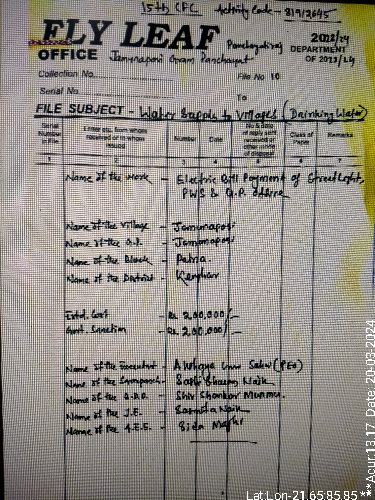 15th CFC Activity Code - 81912645
FLY LEAF
Panchayatiraj 2023/24
DEPARTMENT
OFFICE Jamunapasi Gram Panchayat OF 2023/24
Collection No.
File No 10
Serial No.
To
FILE SUBJECT - Water Supply to Villages (Drinking Water)
Serial Number in File
Enter etc. from whom received or to whom issued
Number Date
No & Date of reply sent received or other mode of disposal
Class of Paper
Remarks
1 2 3 4 5 6 7
Name of the work - Electric Bill Payment of Street light,
PWS & G.P. office
Name of the Village - Jamunapasi
Name of the G.P. - Jamunapasi
Name of the Block - Patna
Name of the District - Keonjhar
Estd. Cost - Rs 2,00,000/-
Govt. Sanction - Rs 2,00,000/-
Name of the Executant - Sahu (PEO)
Name of the Sarpanch - Naik
Name of the - Shiv Shankar Munmu
Name of the J.E. - Naik
Name of the A.E.E. - Majhi
Lat:Lon-21.658585
***Acur:13.17 Date, 20-03-2024